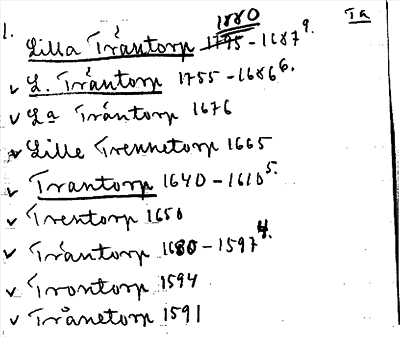 1880 Ta
1. Lilla Tråntorp 1795-1687 9.
v L. Tråntorp 1755-1686 6.
v La Tråntorp 1676
v Lille Trennetorp 1665
v Trantorp 1640-1610 5.
v Trentorp 1650
v Tråntorp 1680-1597 4.
v Trontorp 1594
v Trånetorp 1591